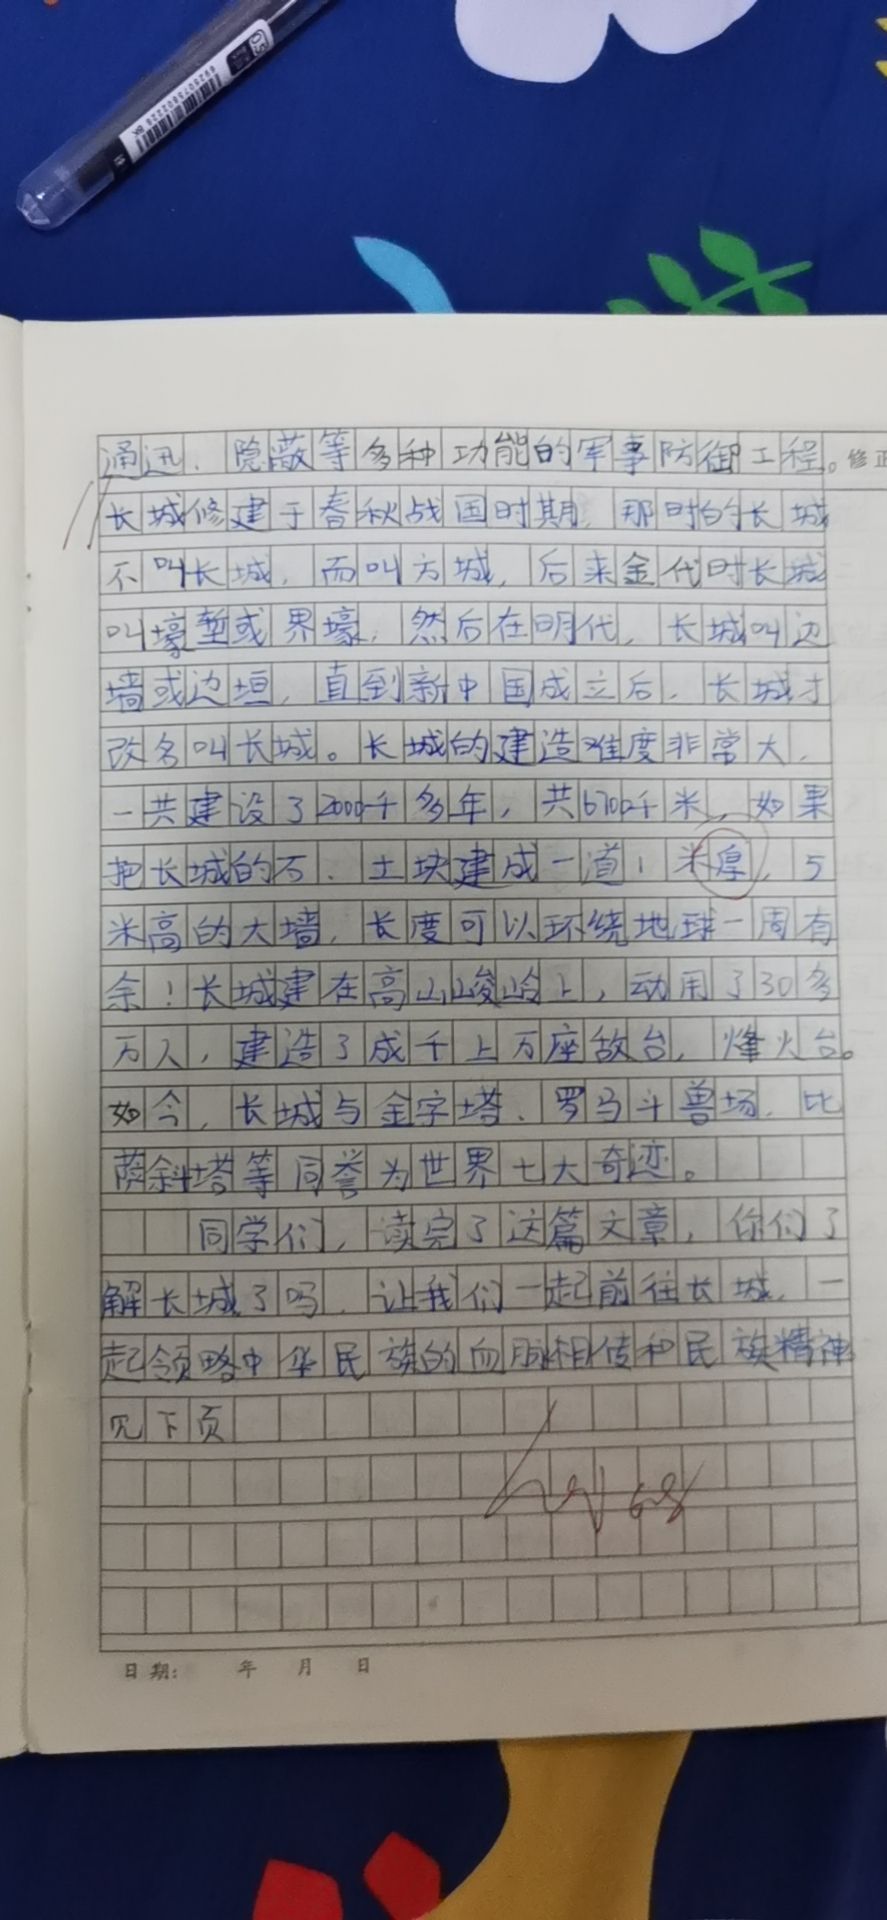 通迅、隐蔽等多种功能的军事防御工程。
修正
长城修建于春秋战国时期，那时的长城
不叫长城，而叫方城，后来金代时长城
叫壕堑或界壕，然后在明代，长城叫边
墙或边垣，直到新中国成立后，长城才
改名叫长城。长城的建造难度非常大，
一共建设了2000千多年，共6700千米，如果
把长城的石、土块建成一道1米厚，5
米高的大墙，长度可以环绕地球一周有
余！长城建在高山峻岭上，动用了30多
万人，建造了成千上万座敌台，烽火台。
如今，长城与金字塔、罗马斗兽场，比
萨斜塔等同誉为世界七大奇迹。
同学们，读完了这篇文章，你们了
解长城了吗，让我们一起前往长城，一
起领略中华民族的血脉相传和民族精神
见下页
日期： 年 月 日